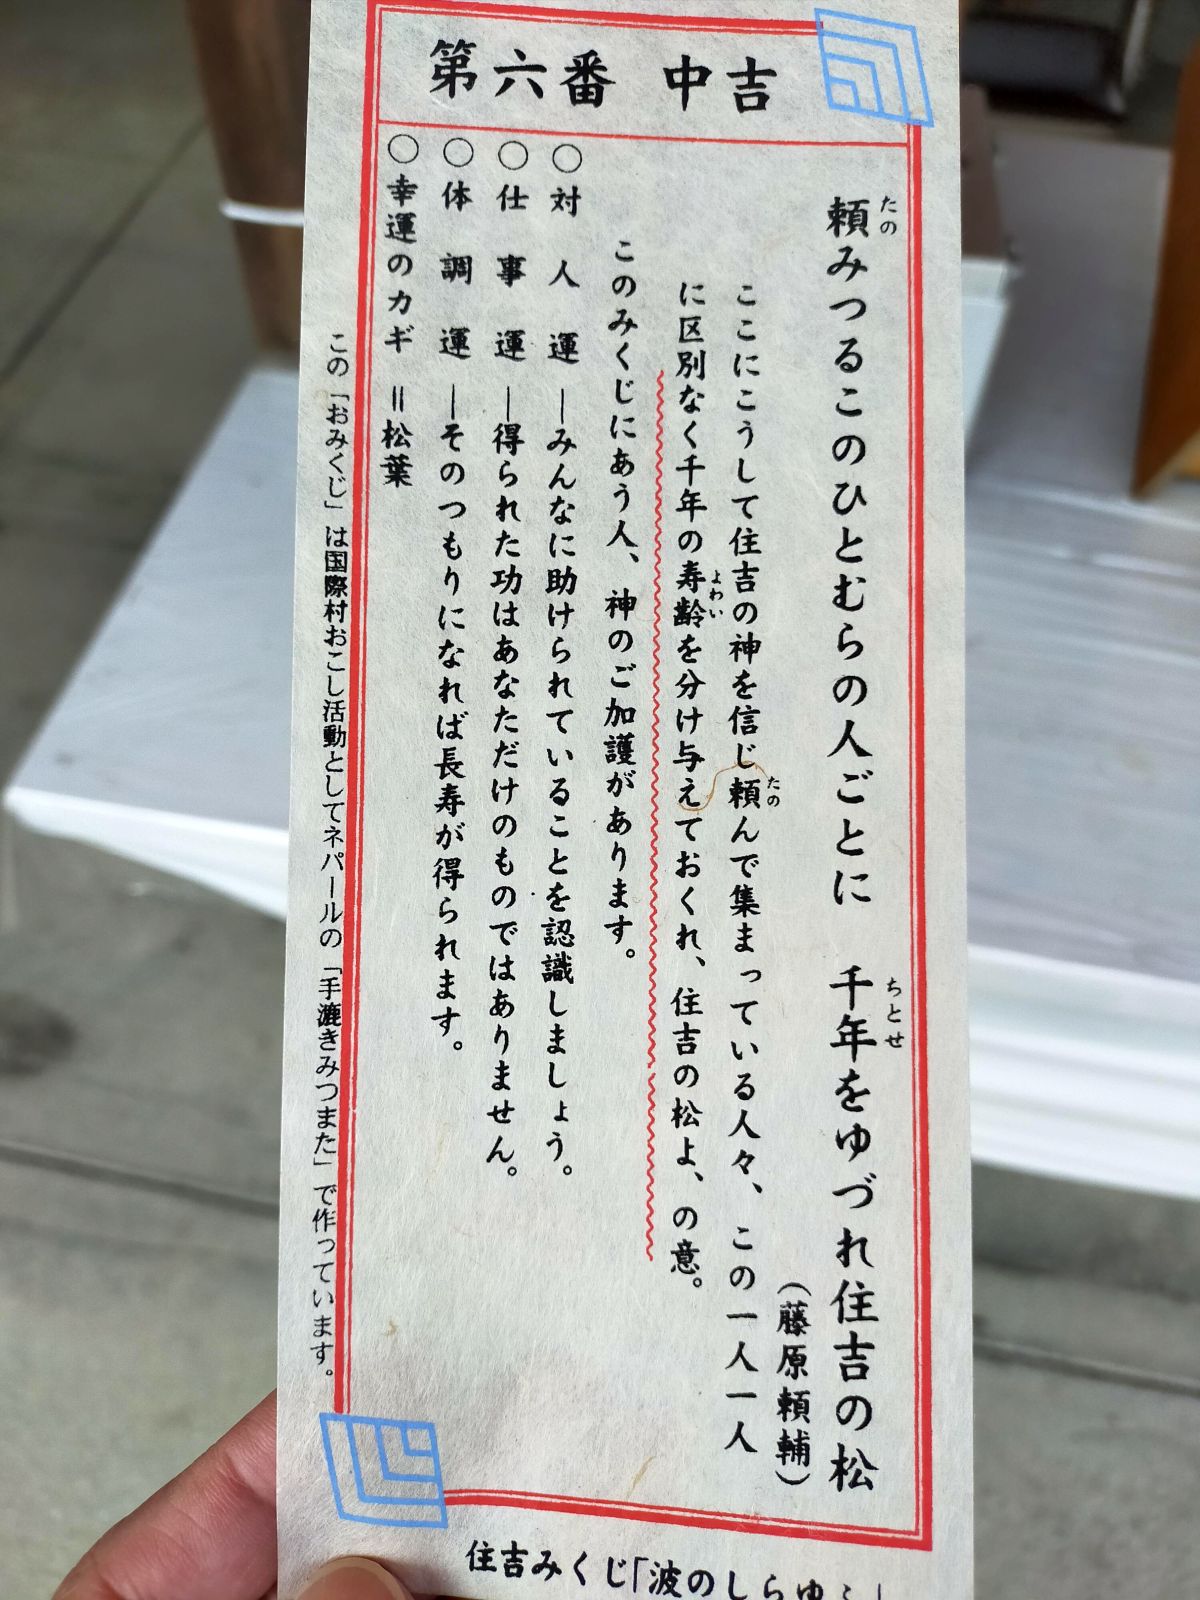 第六番 中吉
頼みつるこのひとむらの人ごとに 千年をゆづれ住吉の松
たの
ちとせ
(藤原頼輔)
ここにこうして住吉の神を信じ頼んで集まっている人々、この一人一人
たの
に区別なく千年の寿齢を分け与えておくれ、住吉の松よ、の意。
よわい
このみくじにあう人、神のご加護があります。
○対人運―みんなに助けられていることを認識しましょう。
○仕事運―得られた功はあなただけのものではありません。
○体調運―そのつもりになれば長寿が得られます。
○幸運のカギ=松葉
この「おみくじ」は国際村おこし活動としてネパールの「手漉きみつまた」で作っています。
住吉みくじ「波のしらゆ